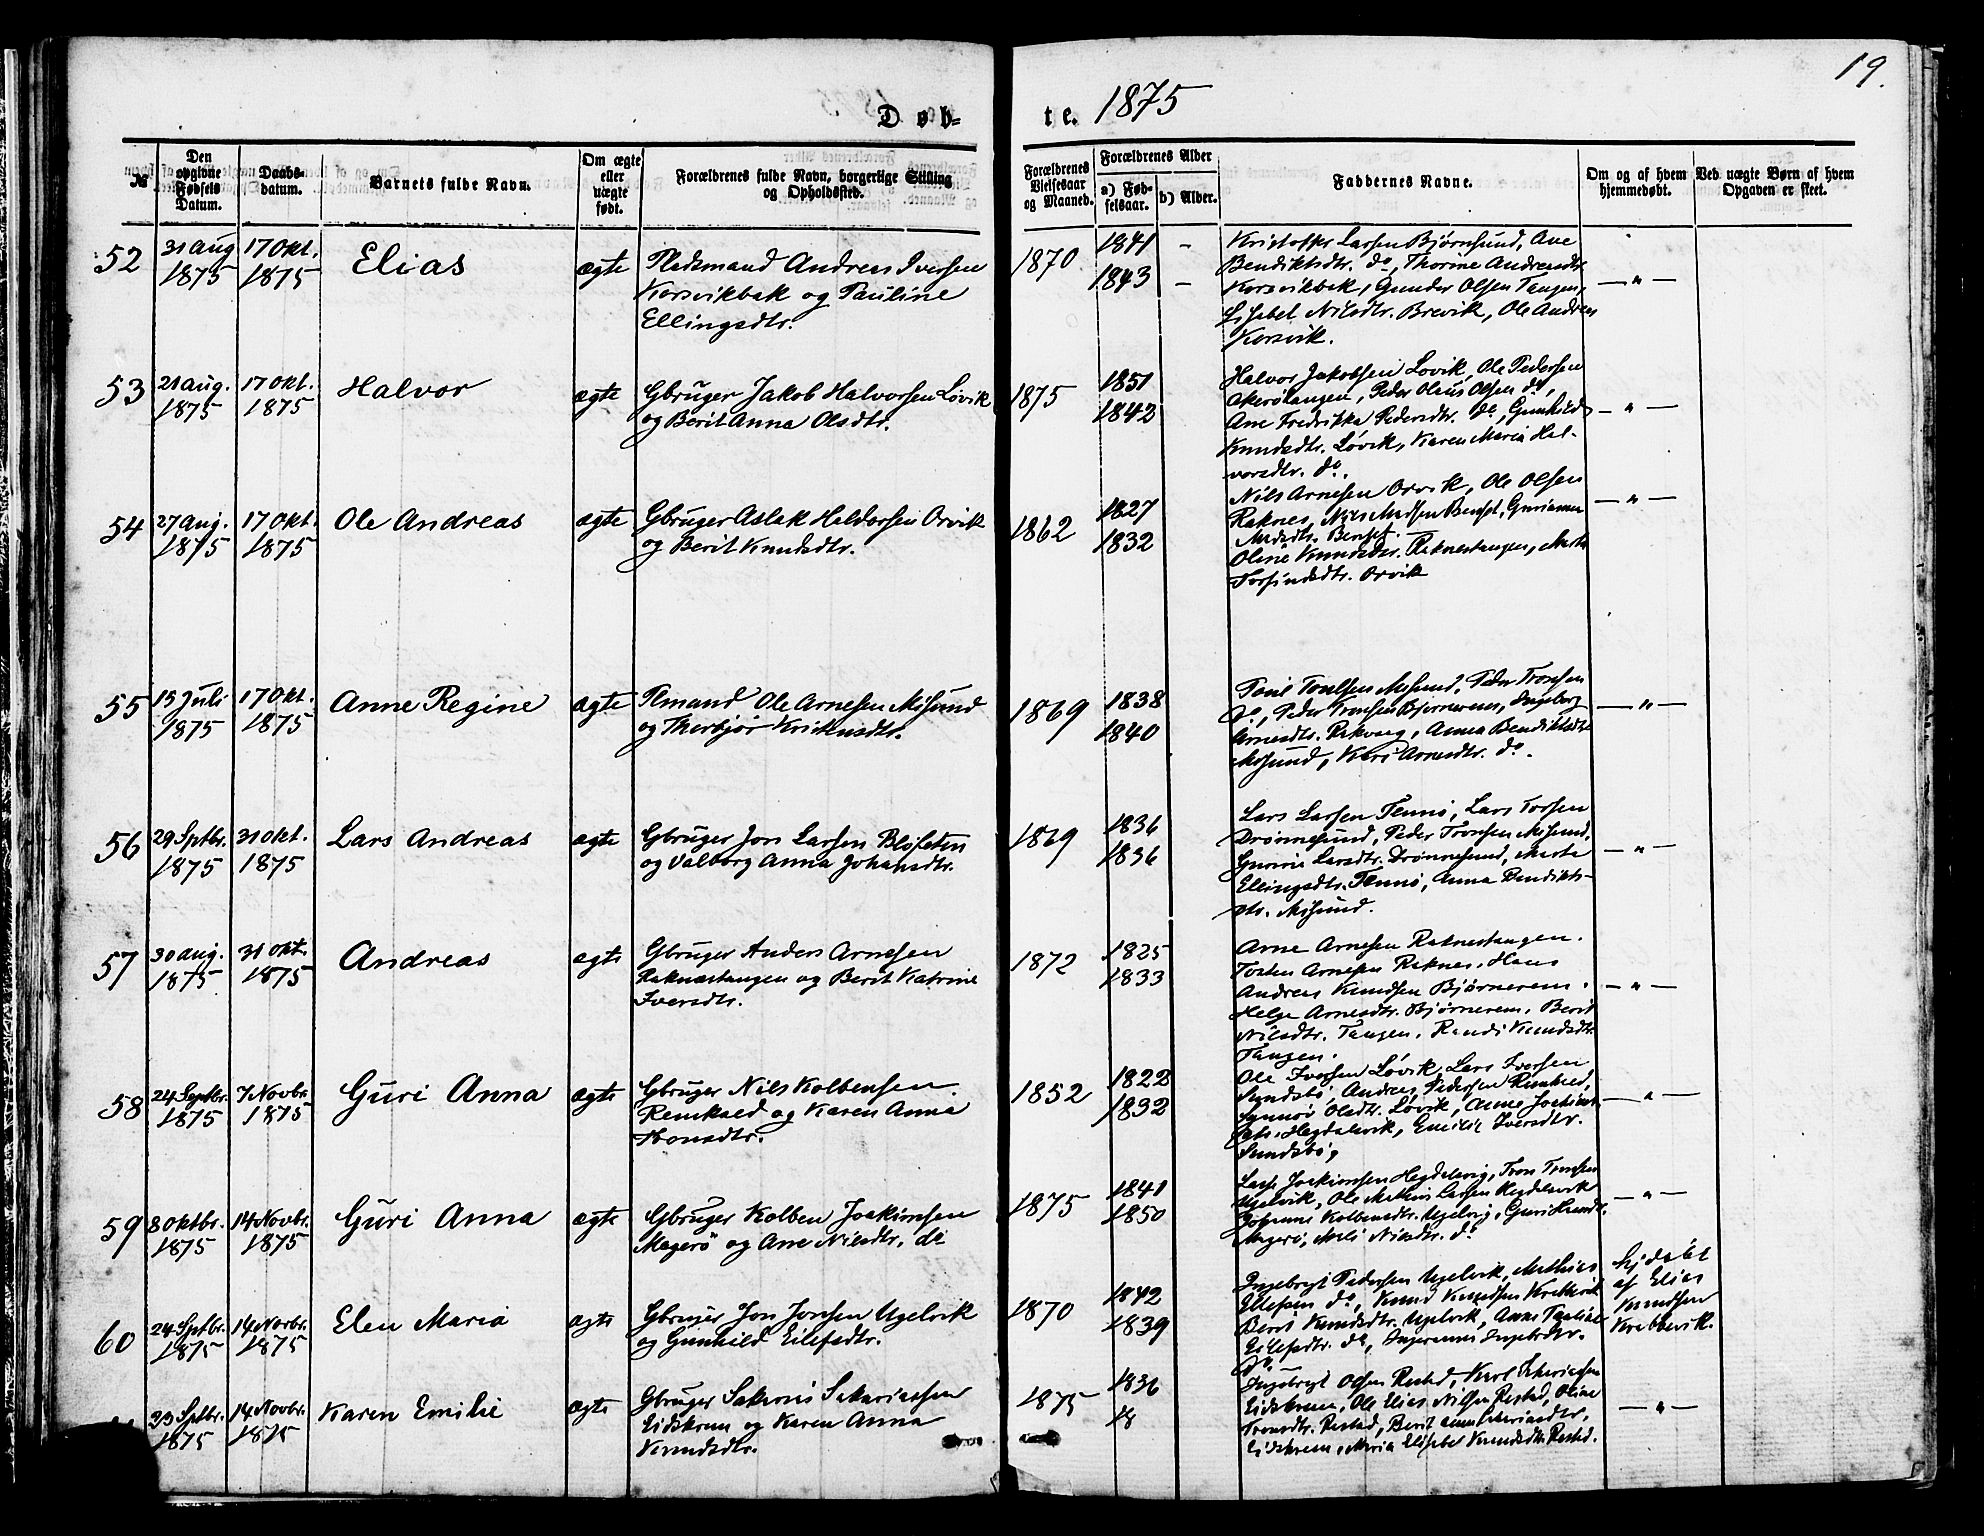 19.
Døb-
te. 1875
№
Den opgivne Fødsels Datum.
Daabs-datum.
Barnets fulde Navn.
Om ægte eller uægte født.
Forældrenes fulde Navn, borgerlige Stilling og Opholdssted.
Forældrenes Vielsesaar og Maaned.
Forældrenes Alder
a) Fød-selsaar.
b) Alder.
Faddernes Navne.
Om og af hvem hjemmedøbt.
Ved uægte Børn af hvem Opgaven er skeet.
52 31 Aug 1875 17 Okt. 1875 Elias ægte Pladsmand Andreas Iversen
Korsvikbak og Pauline
Ellingsdtr.
1870 1841 - 1843 -
Kristoffer Larsen Bjørnsund, Ane
Bendiktsdtr. do, Thorine Andreasdtr.
Korsvikbak, Gunder Olsen Tangen,
Lisabet Nilsdtr. Brevik, Ole Andreas
Korsvik.
— " —
53 21 Aug. 1875 17 Okt. 1875 Halvor ægte Gbruger Jakob Halvorsen Løvik
og Berit Anna Olsdtr.
1875 1851 1842
Halvor Jakobsen Løvik, Ole Pedersen
Akerøtangen, Peder Olaus Olsen do,
Ane Fredrikka Pedersdtr. do, Gunhild
Knudsdtr. Løvik, Karen Maria Hal-
vorsdtr. do.
— " —
54 27 Aug. 1875 17 Okt. 1875 Ole Andreas ægte Gbruger Aslak Haldorsen Orvik
og Berit Knudsdtr.
1862 1827 1832
Nils Arnesen Orvik, Ole Olsen
Raknes, Nils Madsen Benset, Gurianna
Madsdtr. Benset.
Oline Knudsdtr. Raknestangen, Marta
Torfindsdtr. Orvik
— " —
55 15 Juli 1875 17 Okt. 1875 Anne Regine ægte Plmand Ole Arnesen Misund
og Thorbjør Kristensdtr.
1869 1838 1840
Poul Poulsen Misund, Peder Tronsen
do, Peder Tronsen Bjørnerem, Ingeborg
Arnesdtr. Rakvaag, Anna Bendiktsdtr.
Misund, Kari Arnesdtr. do.
— " —
56 29 Sptbr. 1875 31 Okt. 1875 Lars Andreas ægte Gbruger Jon Larsen Bløseten
og Valborg Anna Johansdtr.
1869 1836 1836
Lars Larsen Tennø, Lars Torsen
Drønnesund, Peder Tronsen Misund,
Guruia Larsdtr. Drønnesund, Marta
Ellingsdtr. Tennø, Anna Bendikts-
dtr. Misund.
— " —
57 30 Aug. 1875 31 Okt. 1875 Andreas ægte Gbruger Anders Arnesen
Raknestangen og Berit Katrine
Iversdtr.
1872 1825 1833
Arne Arnesen Raknestangen.
Tosten Arnesen Raknes, Hans
Andreas Knudsen Bjørnerem.
Helge Arnesdtr. Bjørnerem, Berit
Nilsdtr. Tangen, Randi Knudsdtr.
Tangen.
— " —
58 24 Septbr. 1875 7 Novbr. 1875 Guri Anna ægte Gbruger Nils Kolbensen
Remkald og Karen Anna
Tronsdtr.
1852 1822 1832
Ole Iversen Løvik, Lars Iversen
Sundsbø, Andreas Pedersen Remkled,
Synnøv Olsdtr. Løvik, Anne Joakims-
dtr. Hegdalsvik, Emilie Iversdtr.
Sundsbø,
— " —
59 8 Oktbr. 1875 14 Novbr. 1875 Guri Anna ægte Gbruger Kolben Joakimsen
Magerø og Ane Nilsdtr. do
1875 1841 1850
Lars Joakimsen Hegdalsvig, Tron Tronsen
Ugelvik, Ole Mathias Larsen Hegdalsvik
Johanna Kolbensdtr. Ugelvig, Guri
Magerø, Nilsdtr. do
— " —
60 24 Sptbr. 1875 14 Novbr. 1875 Elen Maria ægte Gbruger Jon Jonsen Ugelvik
og Gunhild Eilefsdtr.
1870 1842 1839
Ingebrigt Pedersen Ugelvik, Mathias
Ellefsen do, Knud Knudsen Krebbevik
Berit Knudsdtr. Ugelvik, Anne Pauline
Eilefsdtr. do, Ingeranna Ingebrdtr.
do.
Hjdøbt
af Elias
Knudsen
Krebbevik.
23 Sptbr. 1875 14 Novbr. 1875 Karen Emilie ægte Gbruger Sakarias Sakariassen
Eidskrem og Karen Anna
Knudsdtr.
1875 1836 18
Ingebrigt Olsen Restad, Karl Sakariassen
Eidskrem, Ole Elias Nilsen Restad, Oline
Tronsdtr. Restad, Berit Anna Sakariasdtr.
Eidskrem, Maria Elisabet Knudsdtr. Restad.
— " —